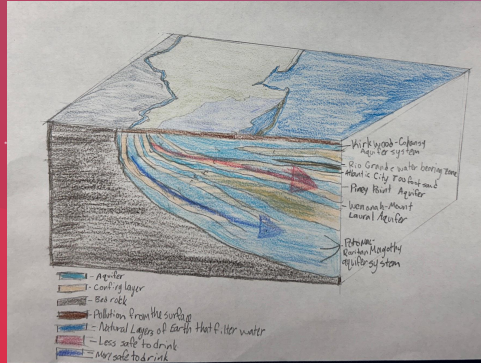 Kirkwood-Cohansey
Aquifer system
Rio Grande water bearing zone
Atlantic City 800 foot sand
Piney Point Aquifer
Wenonah-Mount
Laural Aquifer
Potomac
Raritan Magothy
aquifer system
- Aquifer
- Confing layer
- Bed rock
- Pollution from the surface
- Natural Layers of Earth that filter water
- Less safe to drink
- More safe to drink